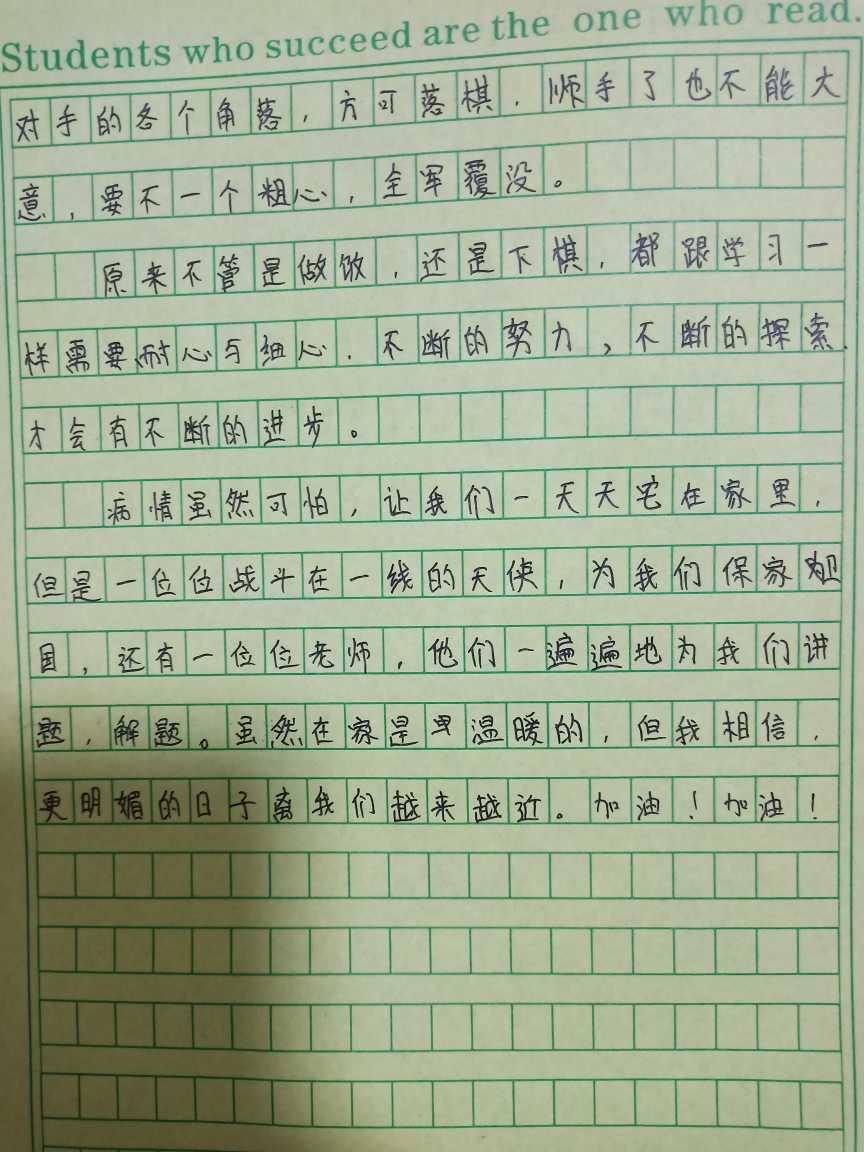 Students who succeed are the one who read.
对手的各个角落，方可落棋，顺手了也不能大
意，要不一个粗心，全军覆没。
原来不管是做饭，还是下棋，都跟学习一
样需要耐心与细心，不断的努力，不断的探索，
才会有不断的进步。
病情虽然可怕，让我们一天天宅在家里，
但是一位位战斗在一线的天使，为我们保家
国，还有一位位老师，他们一遍遍地为我们讲
题，解题。虽然在家是温暖的，但我相信，
更明媚的日子离我们越来越近。加油！加油！